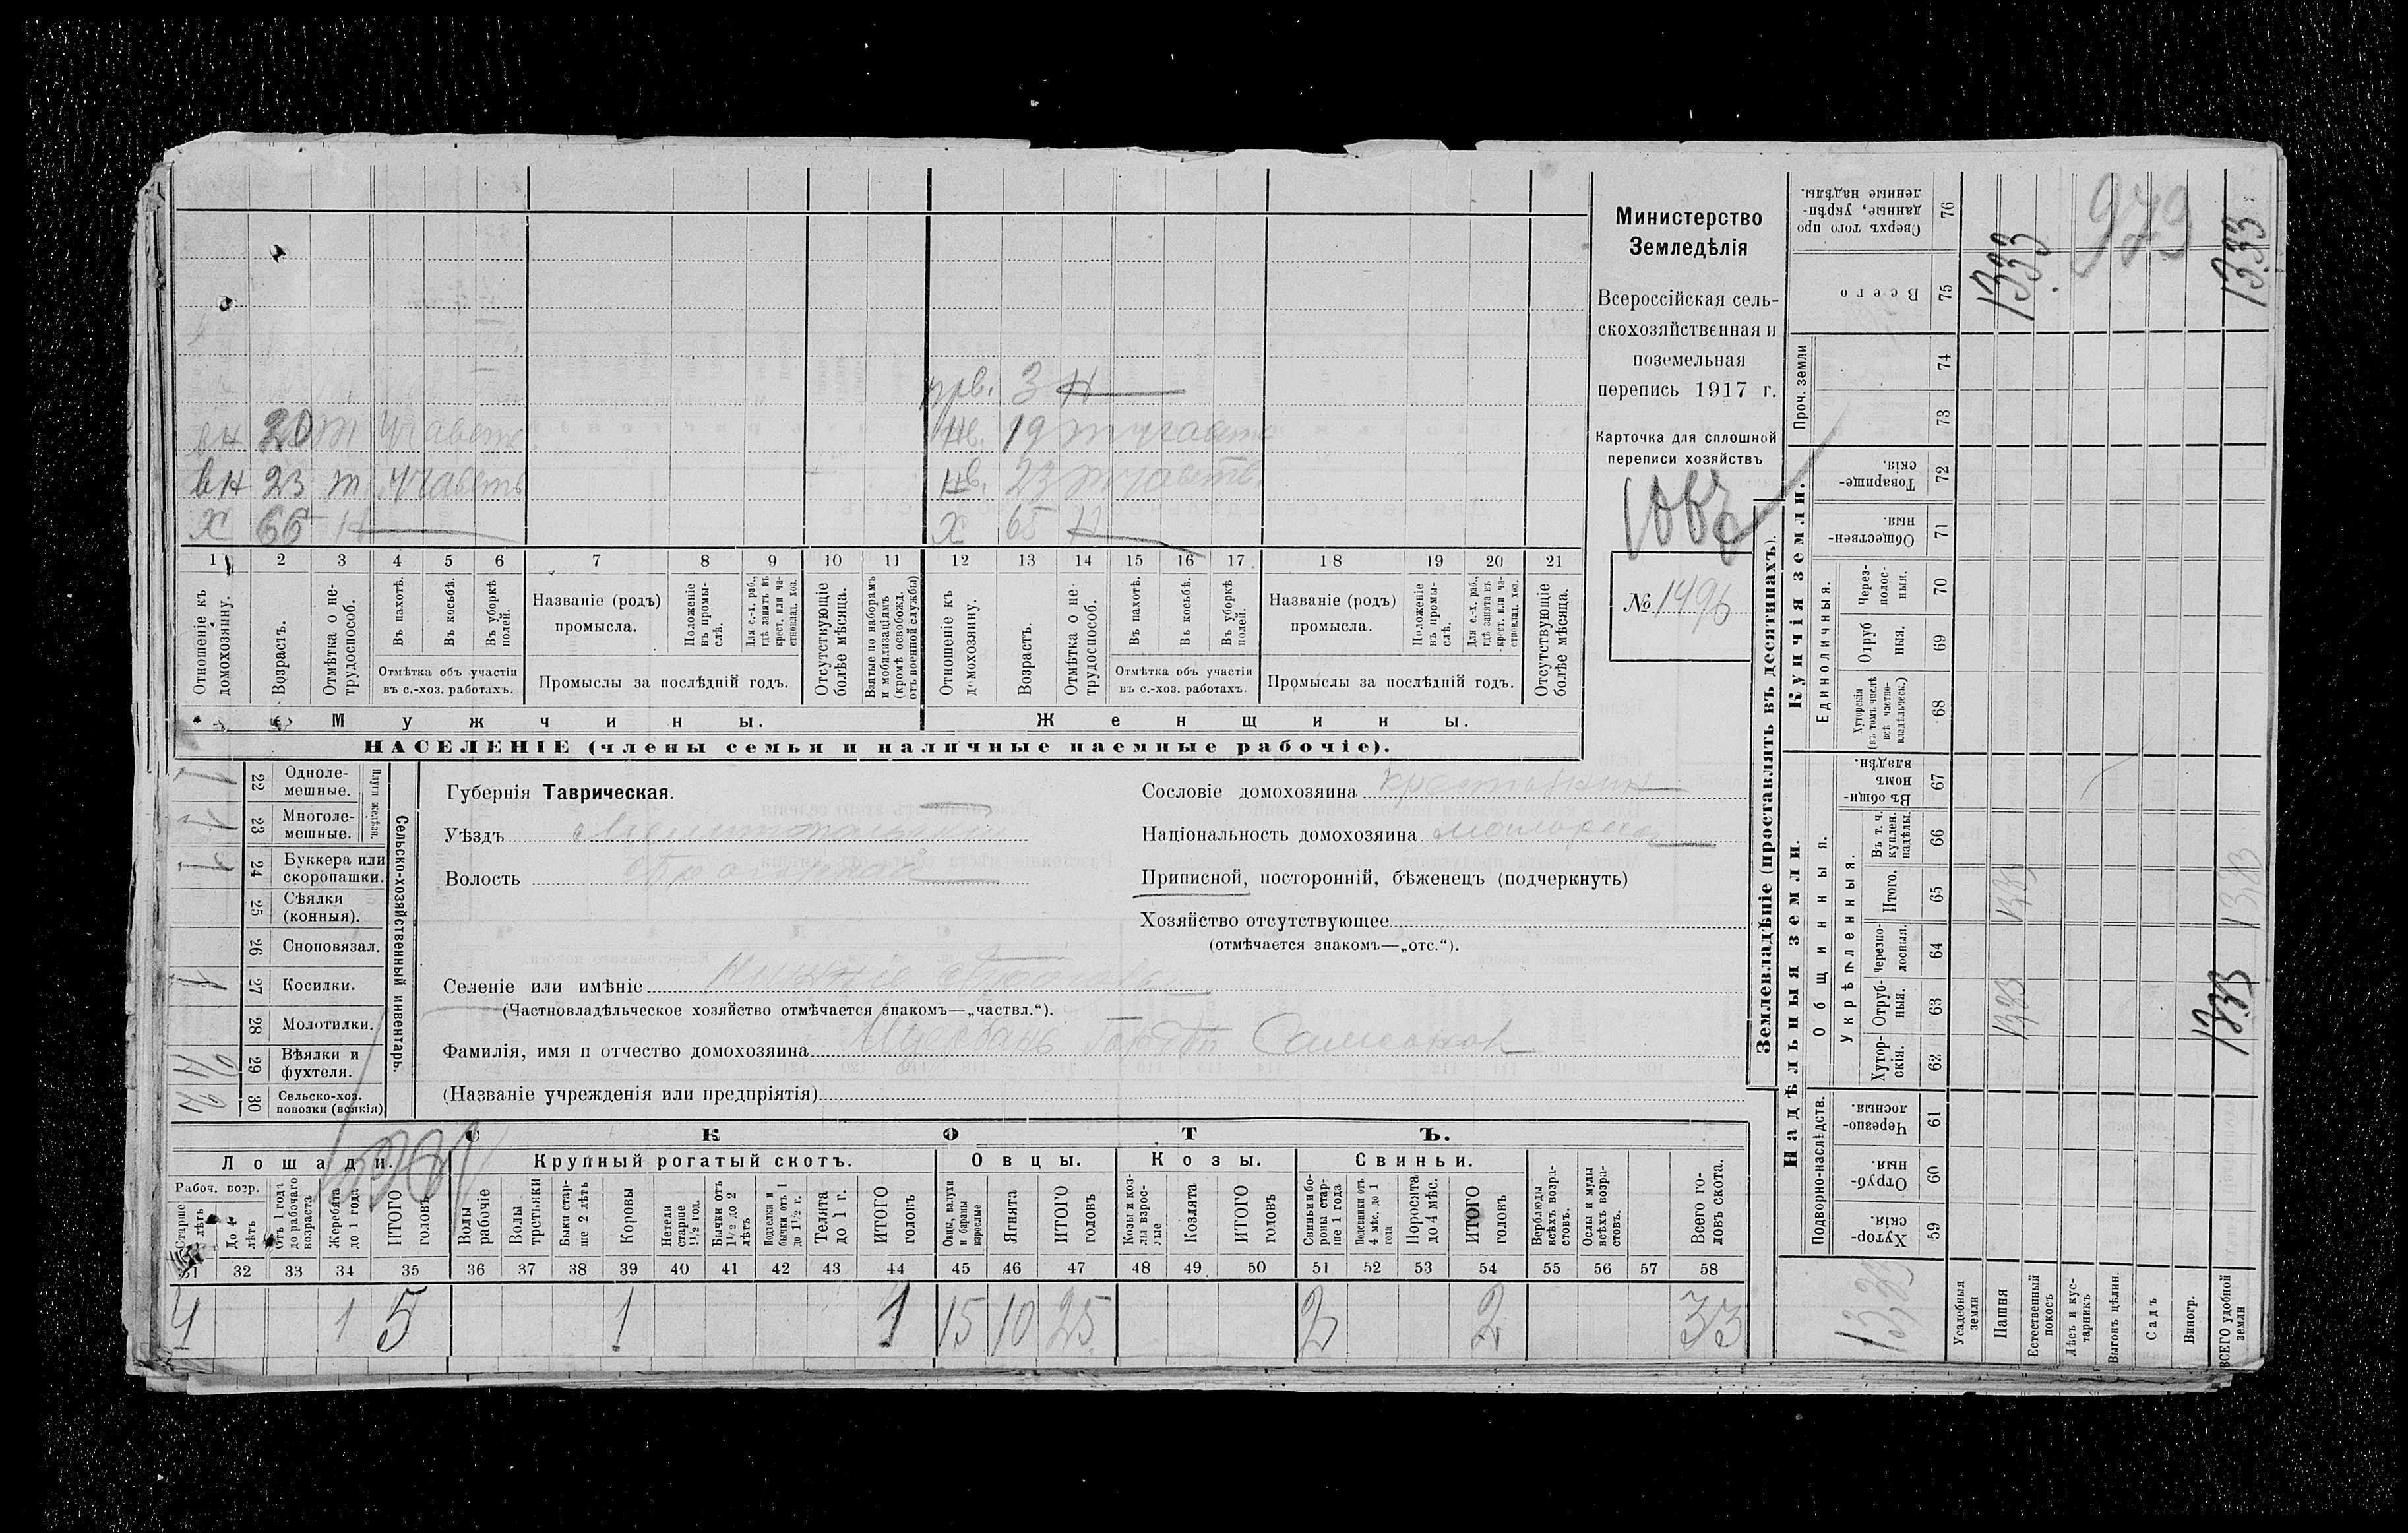 Министерство
Земледѣлія
Всероссійская сель-
скохозяйственная и
поземельная
перепись 1917 г.
Карточка для сплошной
переписи хозяйствъ
№ 1496
979
прв. 3 Н
вн 20 т
нв. 19 т
вн 23 т
нв. 23 т
х 66 Н
х 65 Н
1 2 3 4 5 6 7 8 9 10 11 12 13 14 15 16 17 18 19 20 21
Отношеніе къ домохозяину.
Возрастъ.
Отмѣтка о не-трудоспособ.
Въ пахотѣ.
Въ косьбѣ.
Въ уборкѣ полей.
Отмѣтка объ участіи
въ с.-хоз. работахъ.
Названіе (родъ)
промысла.
Положеніе въ промы-слѣ.
Для с.-х. раб., гдѣ занятъ въ крест. или ча-стновлад. хоз.
Промыслы за послѣдній годъ.
Отсутствующіе болѣе мѣсяца.
Взятые по наборамъ и мобилизаціямъ (кромѣ освобожд. отъ военной службы)
Отношеніе къ домохозяину.
Возрастъ.
Отмѣтка о не-трудоспособ.
Въ пахотѣ.
Въ косьбѣ.
Въ уборкѣ полей.
Отмѣтка объ участіи
въ с.-хоз. работахъ.
Названіе (родъ)
промысла.
Положеніе въ промы-слѣ.
Для с.-х. раб., гдѣ занята въ крест. или ча-стновлад. хоз.
Промыслы за послѣдній годъ.
Отсутствующіе болѣе мѣсяца.
Мужчины.
Женщины.
НАСЕЛЕНІЕ (члены семьи и наличные наемные рабочіе).
Сельско-хозяйственный инвентарь.
Плуги желѣзн.
22 Одноле-мешные. 1
23 Многоле-мешные. 1
24 Буккера или скоропашки. 1
25 Сѣялки (конныя).
26 Сноповязал.
27 Косилки. 1
28 Молотилки.
29 Вѣялки и фухтеля.
30 Сельско-хоз. повозки (всякія) 2
Губернія Таврическая.
Уѣздъ Мелитопольскій
Волость
Селеніе или имѣніе
(Частновладѣльческое хозяйство отмѣчается знакомъ—„частвл.“).
Фамилія, имя и отчество домохозяина
(Названіе учрежденія или предпріятія)
Сословіе домохозяина крестьянин
Національность домохозяина малоросс
Приписной, посторонній, бѣженецъ (подчеркнуть)
Хозяйство отсутствующее
(отмѣчается знакомъ—„отс.“).
СКОТЪ.
Лошади. Крупный рогатый скотъ. Овцы. Козы. Свиньи.
Рабоч. возр.
Старше 4 лѣтъ
До 4 лѣтъ
Отъ 1 года до рабочаго возраста
Жеребята до 1 года
ИТОГО головъ
Волы рабочіе
Волы третьяки
Быки стар-ше 2 лѣтъ
Коровы
Нетели старше 1½ год.
Бычки отъ 1½ до 2 лѣтъ
Подтелки и бычки отъ 1 до 1½ г.
Телята до 1 г.
ИТОГО головъ
Овцы, валухи и бараны взрослые
Ягнята
ИТОГО головъ
Козы и коз-лы взрос-лые
Козлята
ИТОГО головъ
Свиньи и бо-ровы стар-ше 1 года
Подсвинки отъ 4 мѣс. до 1 года
Поросята до 4 мѣс.
ИТОГО головъ
Верблюды всѣхъ возра-стовъ.
Ослы и мулы всѣхъ возра-стовъ.
Всего го-ловъ скота.
31 32 33 34 35 36 37 38 39 40 41 42 43 44 45 46 47 48 49 50 51 52 53 54 55 56 57 58
4 1 5 1 1 15 10 25 2 2 33
Землевладѣніе (проставлять въ десятинахъ).
Надѣльныя земли.
Купчія земли.
Подворно-наслѣдств.
Общинныя.
Укрѣпленныя.
Единоличныя.
Проч. земли
Хутор-скія. 59
Отруб-ныя. 60
Черезпо-лосныя. 61
Хутор-скія. 62
Отруб-ныя. 63
Черезпо-лосныя. 64
Итого. 65
Въ т. ч. куплен. надѣлы. 66
Въ общи-нномъ владѣн. 67
Хуторскія (въ томъ числѣ всѣ частно-владѣльческ.) 68
Отруб ныя. 69
Через-полос-ныя. 70
Обществен-ныя. 71
Товарище-скія. 72
73
74
Всего 75
Сверхъ того про данные, укрѣп-ленные надѣлы. 76
Усадебныя земли
Пашня
Естественный покосъ
Лѣсъ и кус-тарникъ
Выгонъ цѣлин.
Садъ
Виногр.
ВСЕГО удобной земли
1333
1333